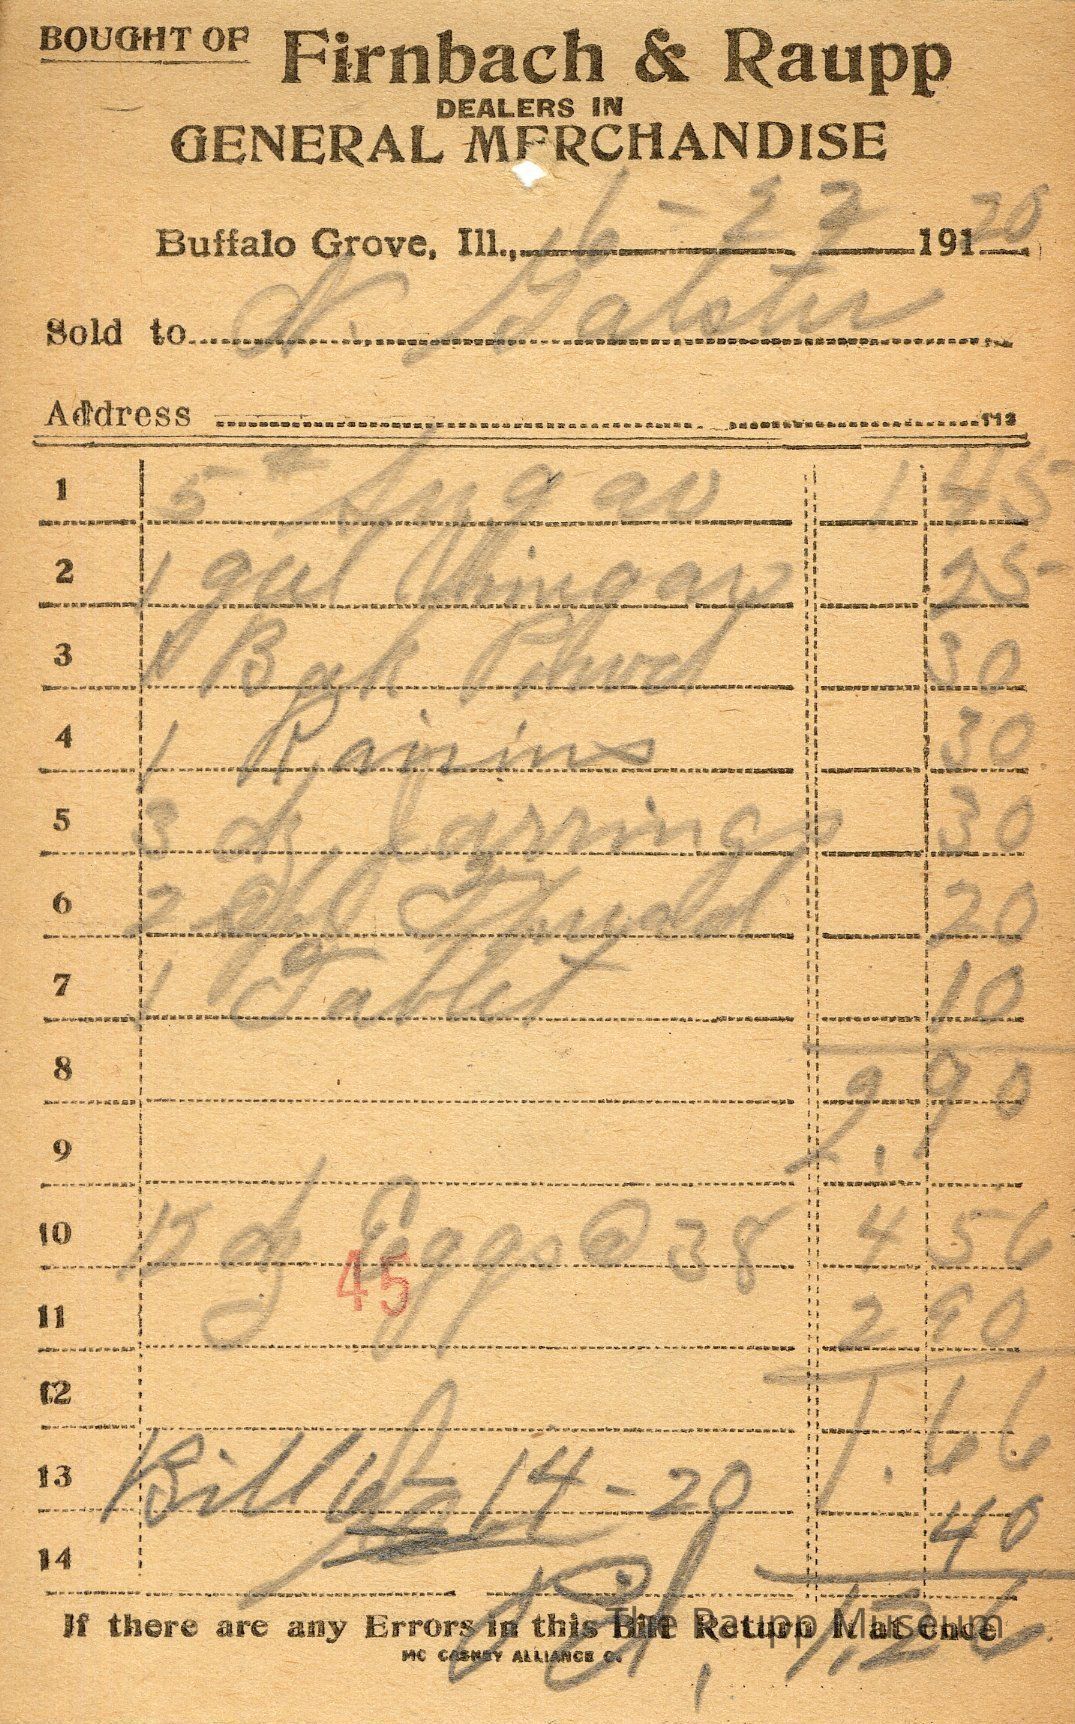 BOUGHT OF Firnbach & Raupp
DEALERS IN
GENERAL MERCHANDISE
Buffalo Grove, Ill., 6-22 191 20
Sold to N. Galster
Address
1 5# Sugar 1 45
2 1 gal Vinigar 25
3 1 Bak Powd 30
4 1 Raisins 30
5 3 dz Jarrings 30
6 2 Spl Thread 20
7 1 Tablet 10
8 2.90
9
10 12 dz Eggs @ 38 4 56
45
11 2 90
12 1.66
13 Bill 6-14-20
14 40
Pd. 1.26
If there are any Errors in this Bill Return it at once
MC CASKEY ALLIANCE O.
The Raupp Museum